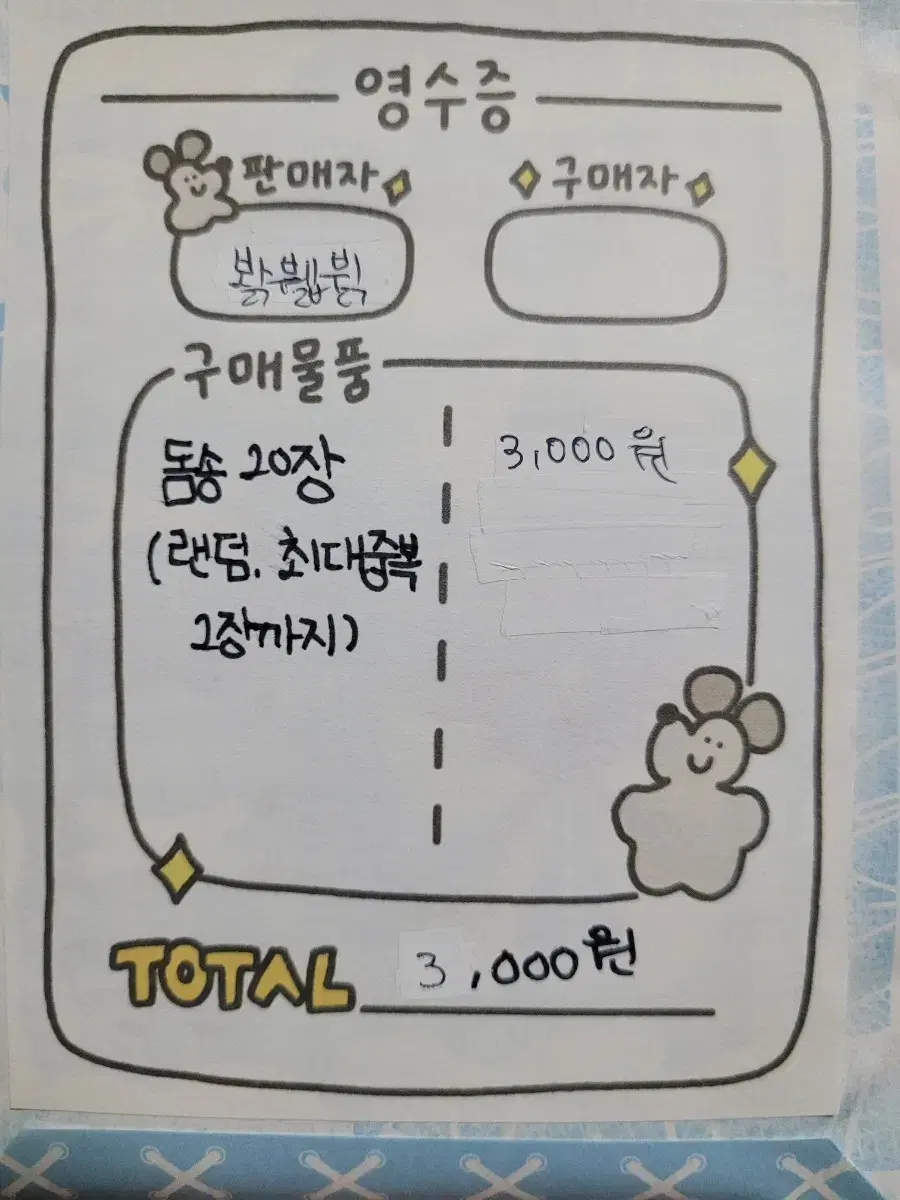 영수증
판매자
구매자
봙뷃뷝
구매물품
돔송 20장
3,000원
(랜덤. 최대중복
2장까지)
TOTAL 3,000원